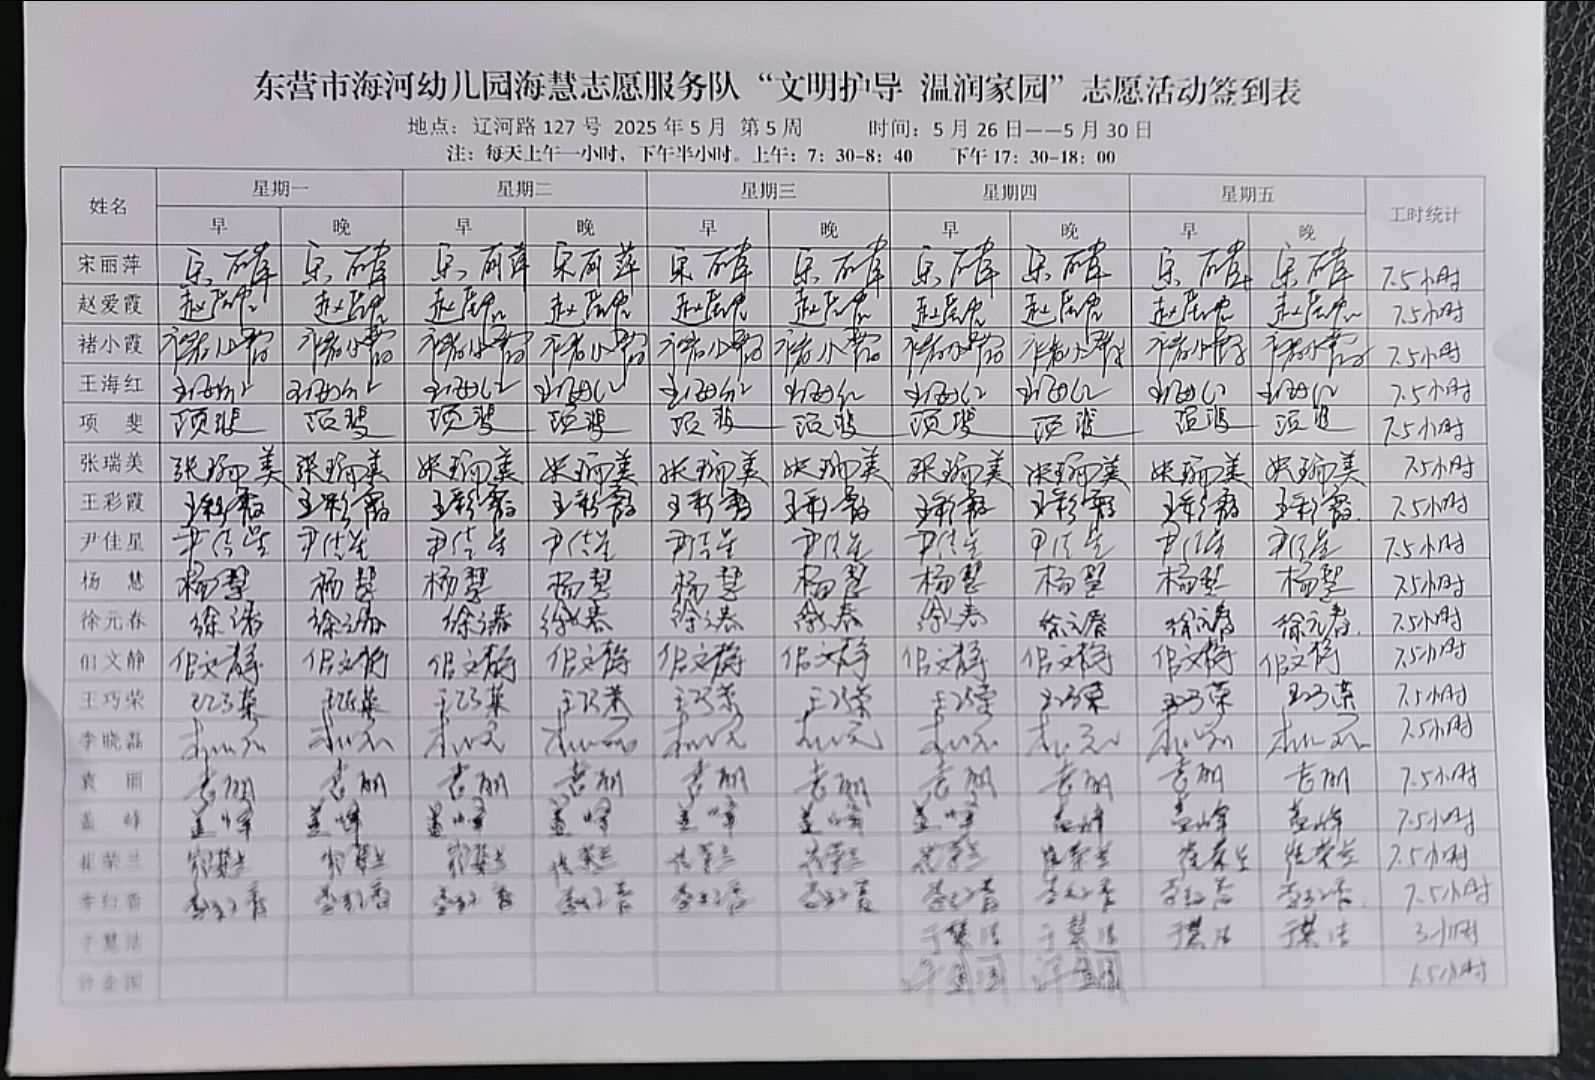 东营市海河幼儿园海慧志愿服务队“文明护导 温润家园”志愿活动签到表
地点：辽河路 127 号 2025 年 5 月 第 5 周 时间：5 月 26 日——5 月 30 日
注：每天上午一小时，下午半小时。上午：7：30-8：40 下午 17：30-18：00
姓名 星期一 星期二 星期三 星期四 星期五 工时统计
早 晚 早 晚 早 晚 早 晚 早 晚
宋丽萍 宋丽萍 宋丽萍 宋丽萍 宋丽萍 宋丽萍 宋丽萍 宋丽萍 宋丽萍 宋丽萍 宋丽萍 7.5小时
赵爱霞 赵爱霞 赵爱霞 赵爱霞 赵爱霞 赵爱霞 赵爱霞 赵爱霞 赵爱霞 赵爱霞 赵爱霞 7.5小时
褚小霞 褚小霞 褚小霞 褚小霞 褚小霞 褚小霞 褚小霞 褚小霞 褚小霞 褚小霞 褚小霞 7.5小时
王海红 王海红 王海红 王海红 王海红 王海红 王海红 王海红 王海红 王海红 王海红 7.5小时
项 斐 项斐 项斐 项斐 项斐 项斐 项斐 项斐 项斐 项斐 项斐 7.5小时
张瑞美 张瑞美 张瑞美 张瑞美 张瑞美 张瑞美 张瑞美 张瑞美 张瑞美 张瑞美 张瑞美 7.5小时
王彩霞 王彩霞 王彩霞 王彩霞 王彩霞 王彩霞 王彩霞 王彩霞 王彩霞 王彩霞 王彩霞 7.5小时
尹佳星 尹佳星 尹佳星 尹佳星 尹佳星 尹佳星 尹佳星 尹佳星 尹佳星 尹佳星 尹佳星 7.5小时
杨 慧 杨慧 杨慧 杨慧 杨慧 杨慧 杨慧 杨慧 杨慧 杨慧 杨慧 7.5小时
徐元春 徐元春 徐元春 徐元春 徐元春 徐元春 徐元春 徐元春 徐元春 徐元春 徐元春 7.5小时
佀文静 佀文静 佀文静 佀文静 佀文静 佀文静 佀文静 佀文静 佀文静 佀文静 佀文静 7.5小时
王巧荣 王巧荣 王巧荣 王巧荣 王巧荣 王巧荣 王巧荣 王巧荣 王巧荣 王巧荣 王巧荣 7.5小时
李晓磊 李晓磊 李晓磊 李晓磊 李晓磊 李晓磊 李晓磊 李晓磊 李晓磊 李晓磊 李晓磊 7.5小时
袁 丽 袁丽 袁丽 袁丽 袁丽 袁丽 袁丽 袁丽 袁丽 袁丽 袁丽 7.5小时
盖 峰 盖峰 盖峰 盖峰 盖峰 盖峰 盖峰 盖峰 盖峰 盖峰 盖峰 7.5小时
崔荣兰 崔荣兰 崔荣兰 崔荣兰 崔荣兰 崔荣兰 崔荣兰 崔荣兰 崔荣兰 崔荣兰 崔荣兰 7.5小时
李红香 李红香 李红香 李红香 李红香 李红香 李红香 李红香 李红香 李红香 李红香 7.5小时
于慧洁 于慧洁 于慧洁 于慧洁 于慧洁 3小时
许金国 许金国 许金国 1.5小时